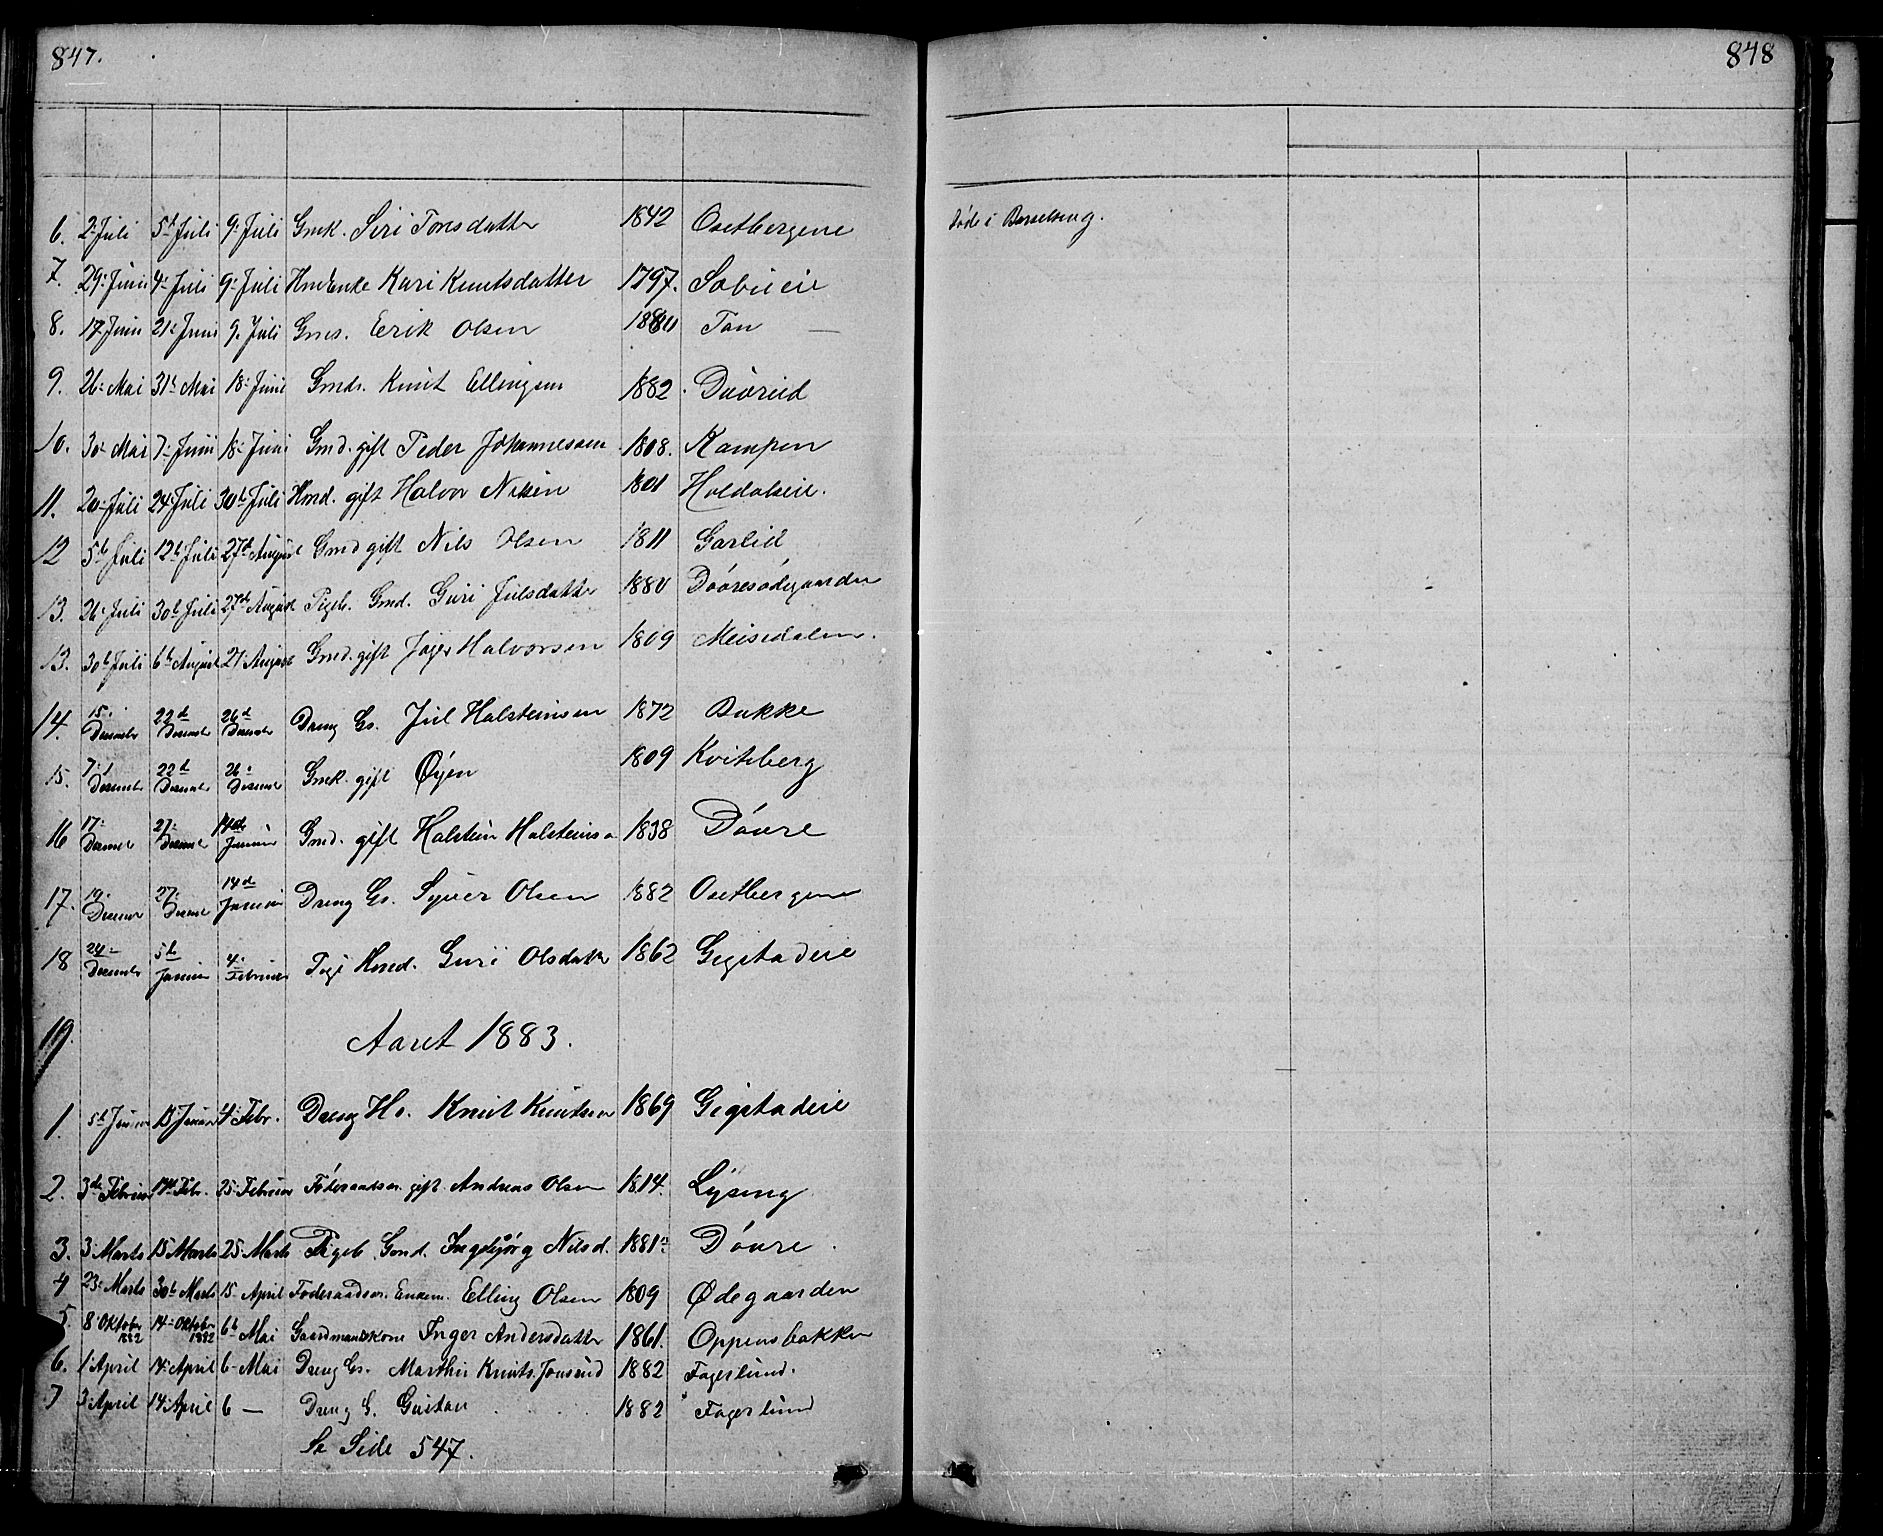 847.
848
6. 2. Juli 5te Juli 9. Juli Gmk. Siri Tonsdatter 1842 Osetbergene Døde i Barselseng.
7. 29. Juni 4. Juli 9. Juli Hmd Enke Kari Knutsdatter 1797.
8. 17 Juni 21. Juni 9. Juli Gms. Eerik Olsen Ton —
9. 26. Mai 31te Mai 18. Juni Gmds. Knut Ellingsen 1882.
10. 30. Mai 7. Juni 18. Juni Gmd. gift Peder Johannessen 1808. Kampen
11. 20. Juli 24. Juli 30te Juli Hmd. gift Halvor 1801
12 5te Juli 12te Juli 27de August Gmd gift Nils Olsen 1811 Garlid
13. 26. Juli 30te Juli 27de August Pigeb. Gmd. Guri Julsdatter 1880 Døvresødegaarden
13. 30te Juli 6te August 27. August Gmd. gift Halvorsen 1809 Meisedalen.
14. 15. December 22de December 26de December Dreng Gs. Jul Halsteinsen 1872 Bakke
15. 7. December 22de December 26. December Gmk. gift Øyen 1809 Kviteberg
16 17. December 27. December 14de Januar Gmd. gift Halstein Halsteinsen 1838 Døvre
17. 19. December 27. December 14de Januar Dreng Gs. Syver Olsen 1882 Osetbergene
18 24. December 5te Januar 4. Februar Pige Hmd. Guri Olsdatter 1862 Gigstadeie
19.
Aaret 1883.
1. 5te Januar 13 Januar 4. Febr. Dreng Hs. Knut Knutsen 1869 Gigstadeie
2. 3de Februar 14de Febr. 25. Februar Føderaadsm. gift Andreas Olsen 1814. Lysing
3. 3. Marts 15 Marts 25 Marts Pigeb. Gmd. Ingebjørg Nilsd. 1881. Døvre.
4 23. Marts 30te Marts 15. April Føderaadsm. Enkem. Elling Olsen 1809 Ødegaarden
5. 8. Oktober 1882 14. Oktober 1882 6te Mai Gaardmandskone Inger Andersdatter 1861. Oppensbakken
6. 1 April 14. April 6. Mai Dreng Gs. Marthin Knuts. Jonsrud 1882 Fagerlund.
7 3. April 14 April 6 — Dreng G. Gustav 1882 Fagerlund
Se Side 547.